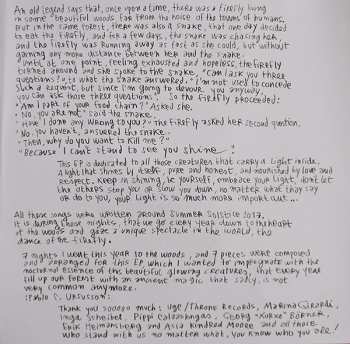 An old legend says that, once upon a time, there was a firefly living
in some beautiful woods far from the noise of the towns of humans.
But in the same forest, there was also a snake, that one day decided
to eat the firefly, and for a few days, the snake was chasing her
and the firefly was running away as fast as she could, but without
gaining any more distance between her and the snake.
Until at one point, feeling exhausted and hopeless, the firefly
turned around and she spoke to the snake, "Can I ask you three
questions?", to what the snake answered. "I'm not used to concede
such a request, but since I'm going to devour you anyway,
you can ask those three questions". So the firefly proceeded:
"Am I part of your food chain?" Asked she.
"No, you are not" said the snake.
"Have I done any wrong to you?" The firefly asked her second question.
"No, you haven't, answered the snake.
"Then, why do you want to kill me?"
"Because I can't stand to see you shine!"
This EP is dedicated to all those creatures that carry a light inside,
A light that shines by itself, pure and honest, and nourished by love and
respect. Keep in shining, be yourself, embrace your light, don't let
the others stop you or slow you down, no matter what they say
or do to you, your light is so much more important...
All these songs were written around Summer Solstice 2017.
It is during those nights, that we go every year down to the heart
of the woods and gaze a unique spectacle in the world, the
dance of the firefly.
7 nights I went this year to the woods, and 7 pieces were composed
and arranged for this EP which I wanted to impregnate with the
nocturnal essence of this beautiful glowing creatures, that every year
fill up our forest with an ancient magic that sadly, is not
very common anymore.
:Pablo C. Ursusson:
Thank you sooooo much: Uge/Throne Records, Marina
Inga Pippi Georg "Börner,
Erik Heimansberg and Asia Kindred Moore and all those
who stand with us no matter what, you know who you are!